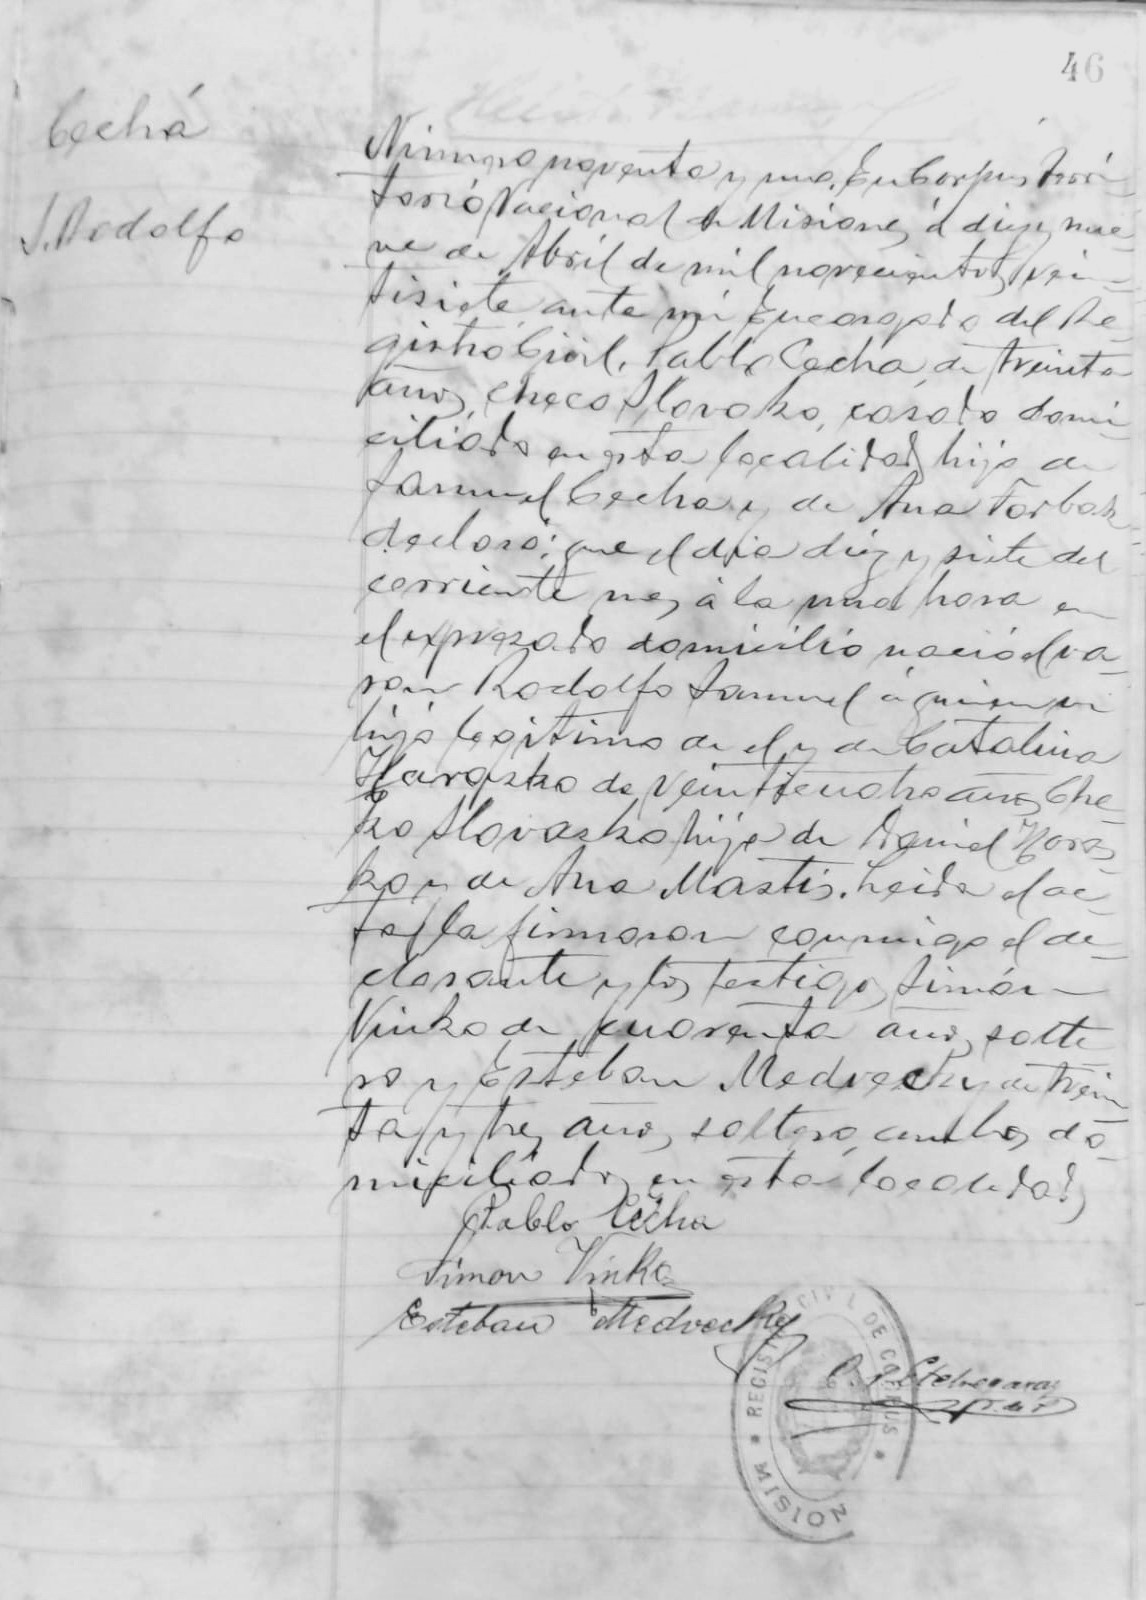 46
Cechá
S. Rodolfo
Número noventa y uno. En Corpus, Terri-
torio Nacional de Misiones, á diez y nue-
ve de Abril de mil novecientos vein-
tisiete ante mí Encargado del Re-
gistro Civil, Pablo Cecha, de treinta
años, checo slovako, casado domi-
ciliado en esta localidad, hijo de
Samuel Cecha y de Ana Farbak
declaró: que el dia diez y siete del
corriente mes á la una hora en
el expresado domicilio nació el va-
ron Rodolfo Samuel á quien vi
hijo legitimo de el y de Catalina
Harasko de veinticuatro años, Che-
ko slovaska hija de Daniel Haras-
ko y de Ana Mastis. Leida el ac-
ta, la firmaron conmigo el de-
clarante y los testigos Simón
Vinko de cuarenta años, solte
ro y Esteban Medvecky de trein
ta y tres años, soltero, ambos do-
miciliados en esta localidad,
Pablo Cecha
Simon Vinko
Esteban Medvecky
REGIST CIVIL DE CORPUS
MISION
Etchegaray